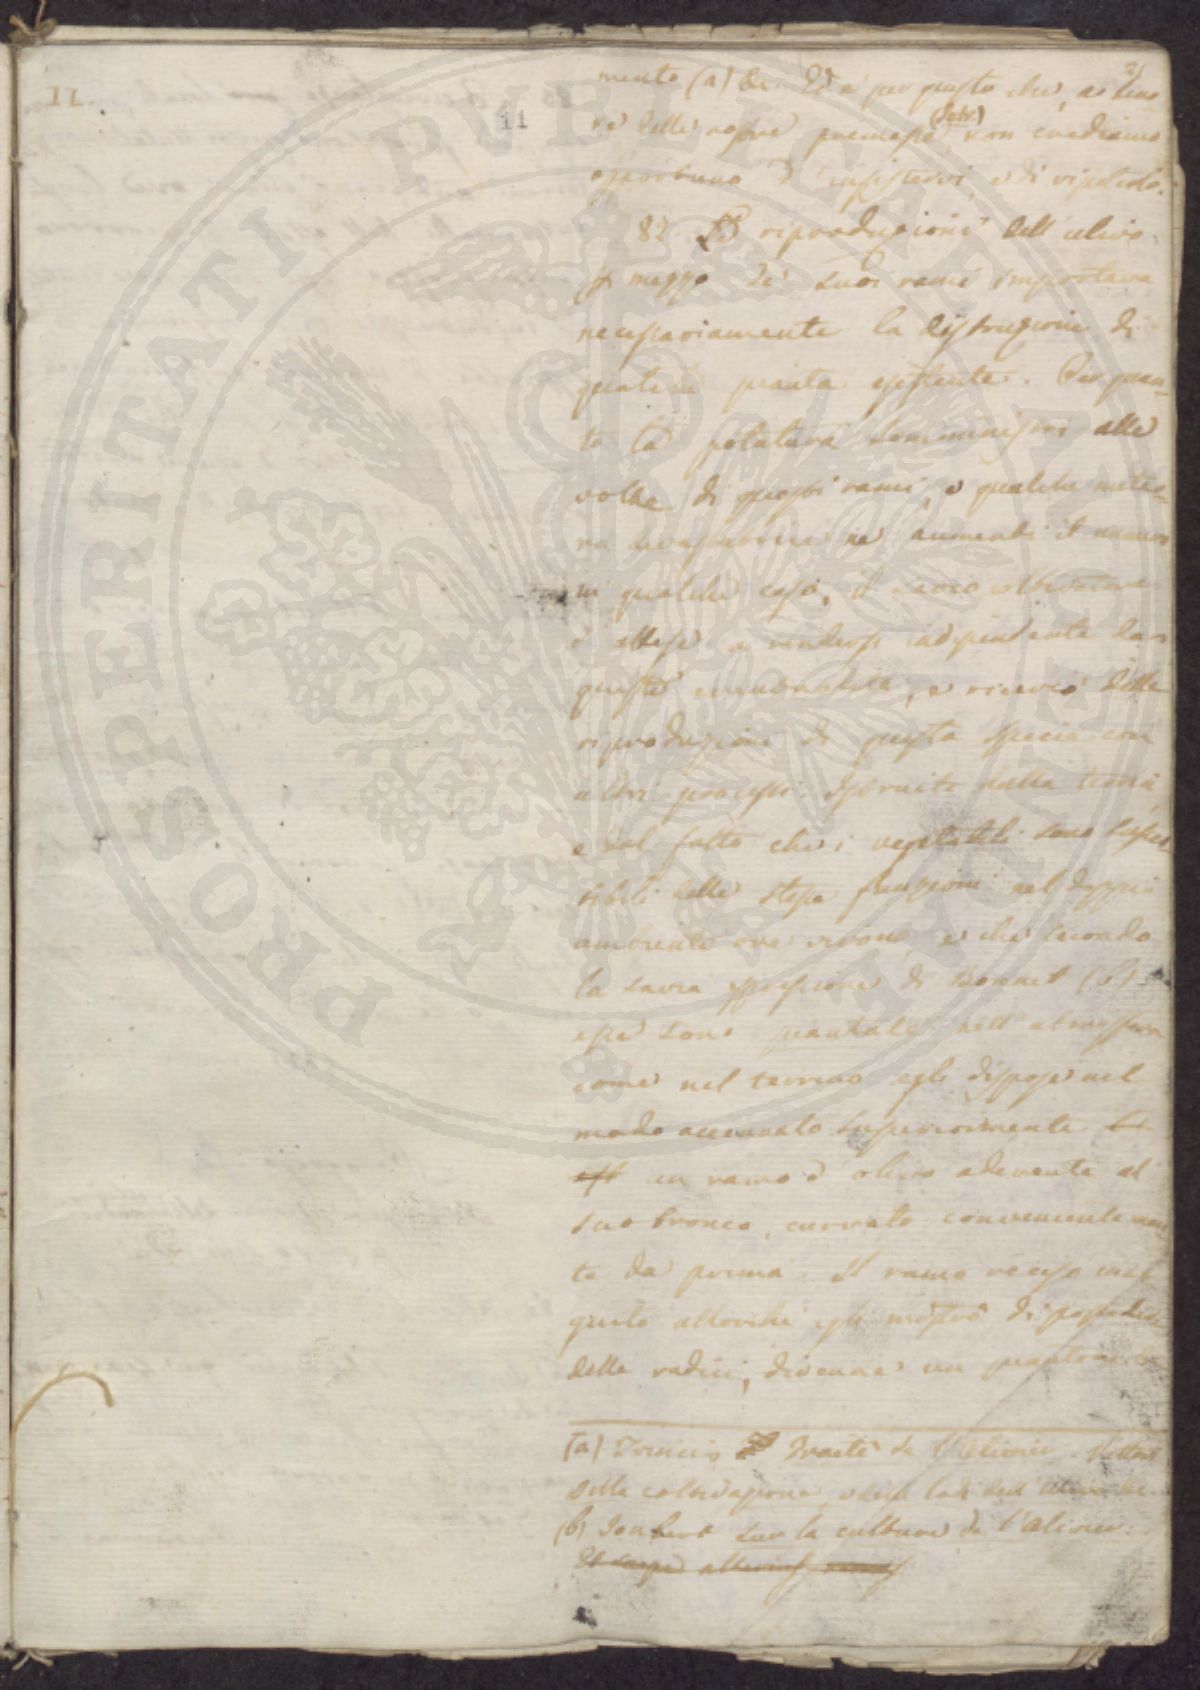 11.
11
21
mento (a) &c. Ed è per questo che, a teno
re delle nostre premesse (Intr.) non crediamo
opportuno d'insistervi, e di ripeterlo.
82 La riproduzione dell'ulivo
p mezzo de' suoi rami importava
necessariamente la distruzione di
qualche pianta esistente. Per quan-
to la potatura somministri alle
volte di questi rami, e qualche meteo-
ra devastatrice ne aumenti il numero
in qualche caso, il savio coltivatore
è attese a rendersi indipendente da
queste, e ricercò delle
riproduzioni di questa specie con
altri processi. Istruito dalla teoria,
e dal fatto che i vegetabili sono suscet-
tibili delle stesse funzioni nel doppio
ambiente ove vivono, e che secondo
la savia espressione di Bonnet (b)
esse sono piantate nell'atmosfera
come nel terreno egli dispose nel
modo accennato superiormente
un ramo d'olivo aderente al
suo tronco, curvato convenientemen-
te da prima. Il ramo reciso
allorchè egli mostrò di possedere
delle radici, divenne un
(a) Traité de l'Olivier.
della coltivazione
(b) sur la culture de l'Olivier.